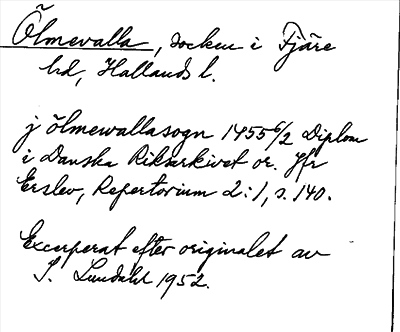 Ölmevalla, socken i Fjäre
hd, Hallands l.
j ölmewallasogn 1455 6/2 Diplom
i Danska Riksarkivet or. Jfr
Erslev, Repertorium 2:1, s. 140.
Excerperat efter originalet av
I. Lundahl 1952.